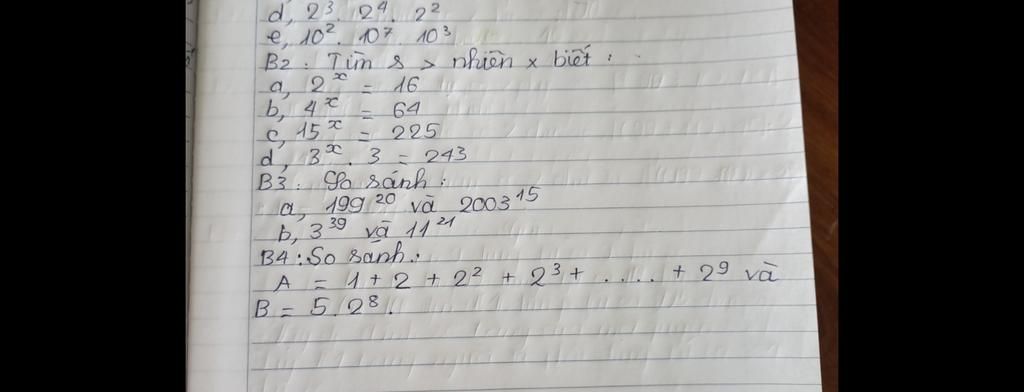 d, 2³. 2⁴. 2²
e, 10². 10⁷. 10³
B2: Tìm s > nhiên x biết:
a, 2ˣ = 16
b, 4ˣ = 64
c, 15ˣ = 225
d, 3ˣ. 3 = 243
B3: So sánh:
a, 199²⁰ và 2003¹⁵
b, 3³⁹ và 11²¹
B4: So sánh:
A = 1 + 2 + 2² + 2³ + ..... + 2⁹ và
B = 5.2⁸.